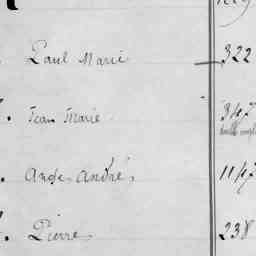 Paul Marie 322
Jean Marie 347
Ange André, 1147
Pierre 238